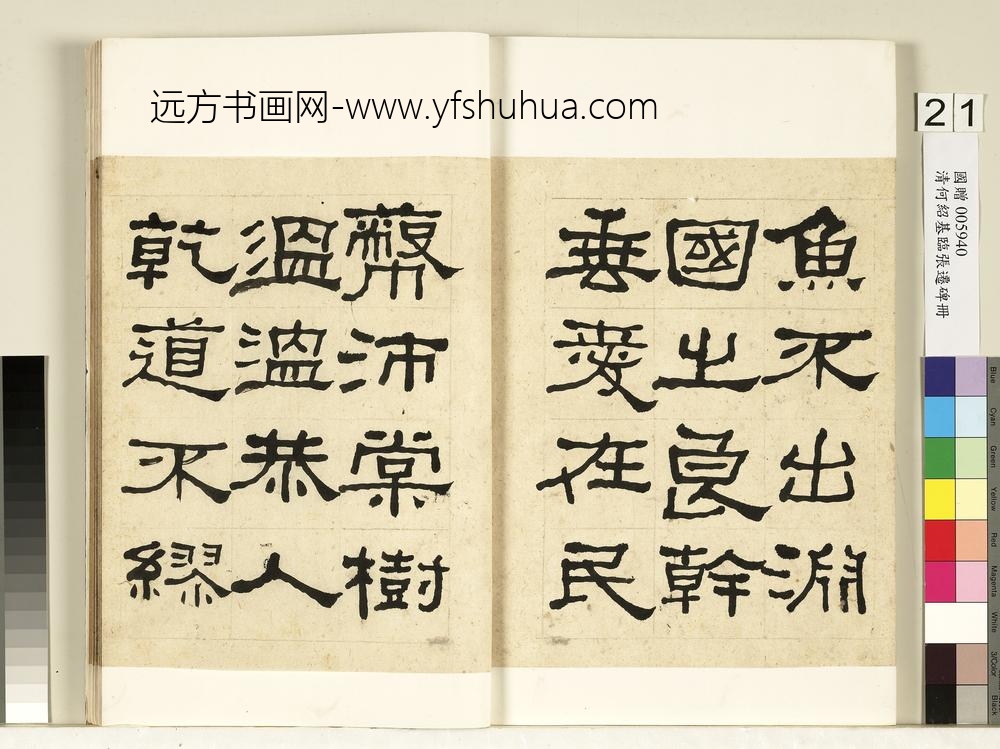 远方书画网-www.yfshuhua.com
魚不出淵
國之良幹
垂愛在民
蔽沛棠樹
溫溫恭人
乾道不繆
21
國贈 005940
清何紹基臨張遷碑冊
Blue
Cyan
Green
Yellow
Red
Magenta
White
3/Color
Black